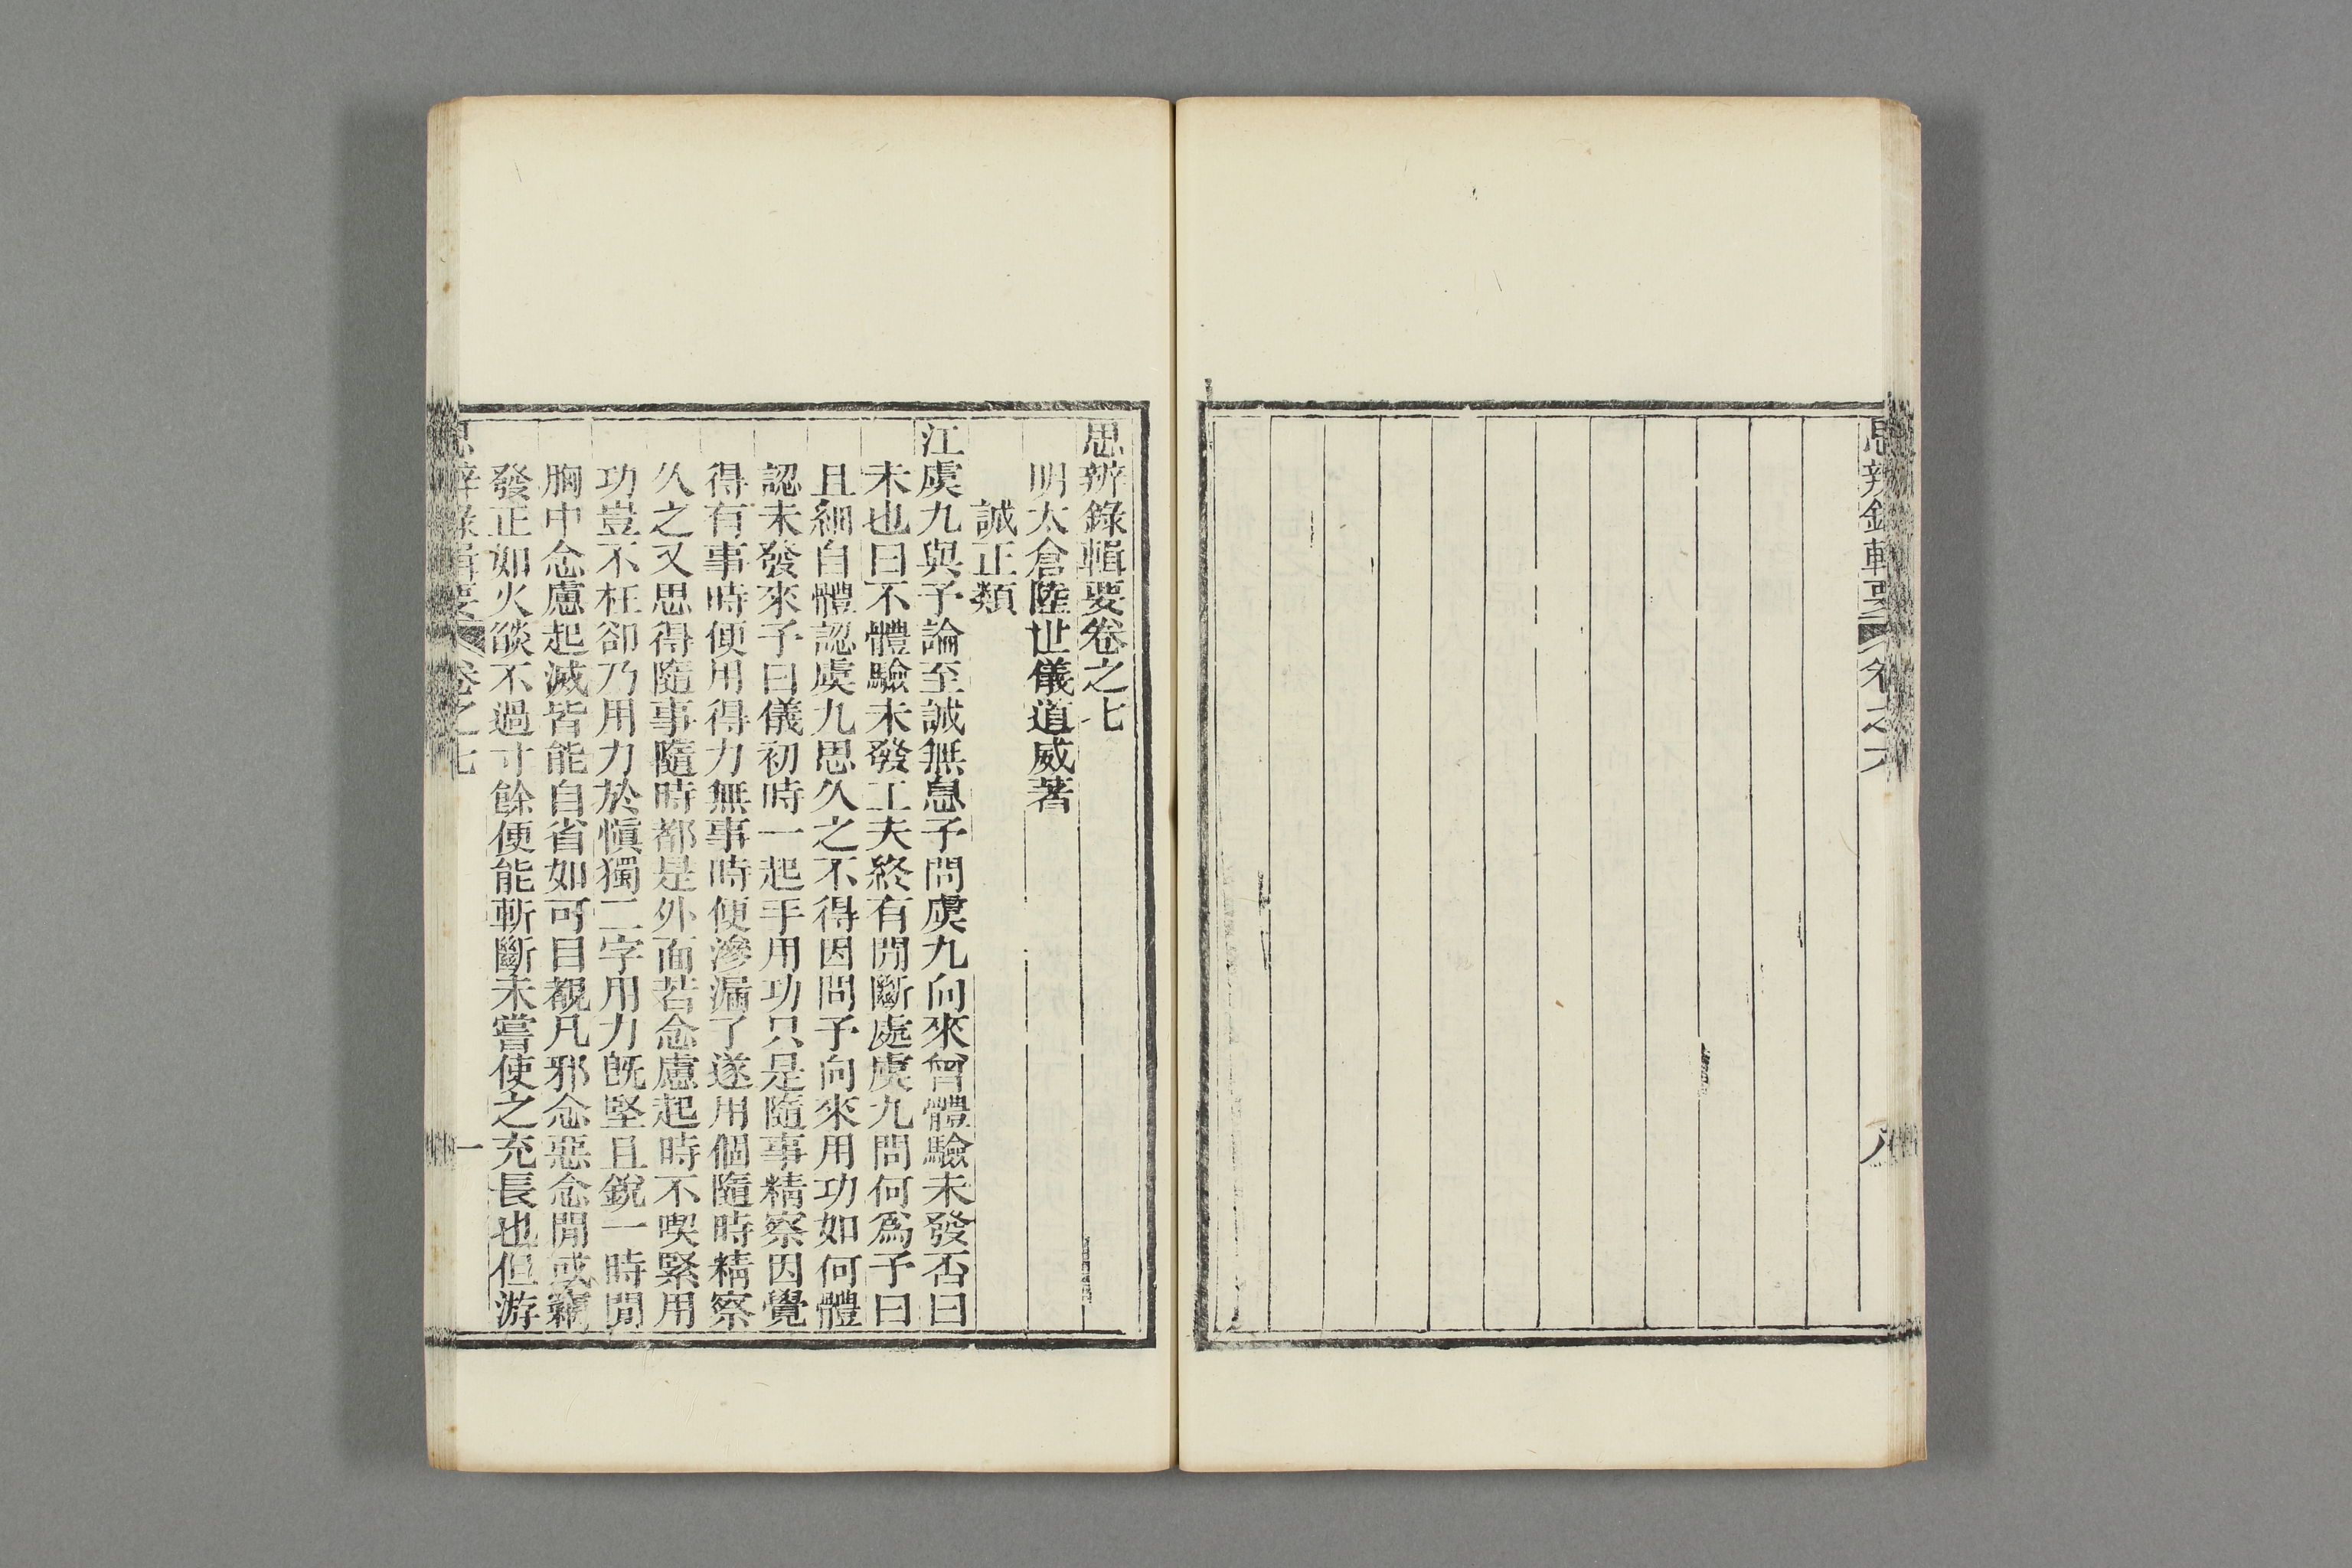 思辨錄輯要 卷之六 八
思辨錄輯要卷之七
明太倉陸世儀道威著
誠正類
江虞九與予論至誠無息予問虞九向來曾體驗未發否曰
未也曰不體驗未發工夫終有間斷處虞九問何爲予曰
且細自體認虞九思久之不得因問予向來用功如何體
認未發來予曰儀初時一起手用功只是隨事精察因覺
得有事時便用得力無事時便滲漏了遂用個隨時精察
久之又思得隨事隨時都是外面若念慮起時不喫緊用
功豈不枉卻乃用力於愼獨二字用力旣堅且銳一時間
胸中念慮起滅皆能自省如可目覩凡邪念惡念閒或竊
發正如火燄不過寸餘便能斬斷未嘗使之充長也但游
思辨錄輯要 卷之七 一